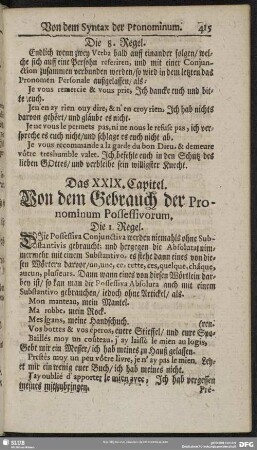 Von dem Syntax der Pronominum. 415
Die 8. Regel.
Endlich wenn zwey Verba bald auff einander folgen/ wel-
che sich auff eine Persohn referiren, und mit einer Conjun-
ction zusammen verbunden werden/ so wird in dem letzten das
Pronomen Personale außgelassen/ als:
Je vous remercie & vous prie, Ich dancke euch und bit-
te euch.
Jen'en ay rien ouy dire, & n'en croy rien. Ich hab nichts
darvon gehört/ und glaube es nicht.
Je ne vous le permets pas, ni ne nous le refuse pas; ich ver-
spreche es euch nicht/ und schlage es euch nicht ab.
Je vous recommande à la garde du bon Dieu, & demeure
vôtre treshumble valet. Ich befehle euch in den Schutz des
lieben GOttes/ und verbleibe sein willigster Knecht.
Das XXIX. Capitel.
Von dem Gebrauch der Pro-
nominum Possessivorum,
Die 1. Regel.
DIe Possessiva Conjunctiva werden niemahls ohne Sub-
stantivis gebraucht: und hergegen die Absoluta nim-
mermehr mit einem Substantivo. es stehe dann eines von die-
sen Wörtern darvor/ un, une, ce, cette, ces, quelque, châque,
aucun, plusieurs. Dann wann eines von diesen Wörtlein dar-
bey ist/ so kan man die Possessiva Absoluta auch mit einem
Substantivo gebrauchen/ jedoch ohne Artickel/ als.
Mon manteau, mein Mantel.
Ma robbe, mein Rock.
Mes gans, meine Handschuch. (ren.
Vos bottes & vos éperos, eurer Stieffel/ und eure Spa-
Baillés moy un coûteau, j'ay laissé le mien au logis,
Gebt mir ein Messer/ ich hab meines zu Hauß gelassen.
Prestés moy un peu vôtre livre, je n'ay pas le mien. Ley-
et mir ein wenig euer Buch/ ich hab meines nicht.
J'ay oublié d'apporter le mien avec, Ich hab vergessen
meines mitzubringen.
Pre-
SLUB